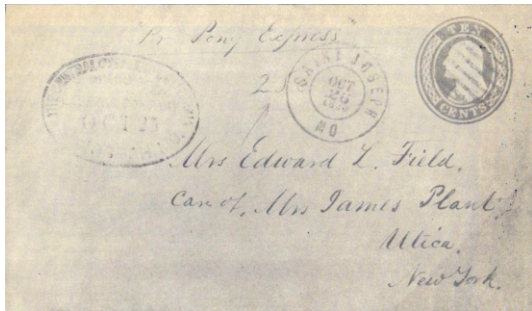 Pr Pony Express
TEN
CENTS
SAINT JOSEPH
OCT
MO
OCT 25
Mrs Edward L. Field,
Care of, Mrs James Plant,
Utica,
New York.